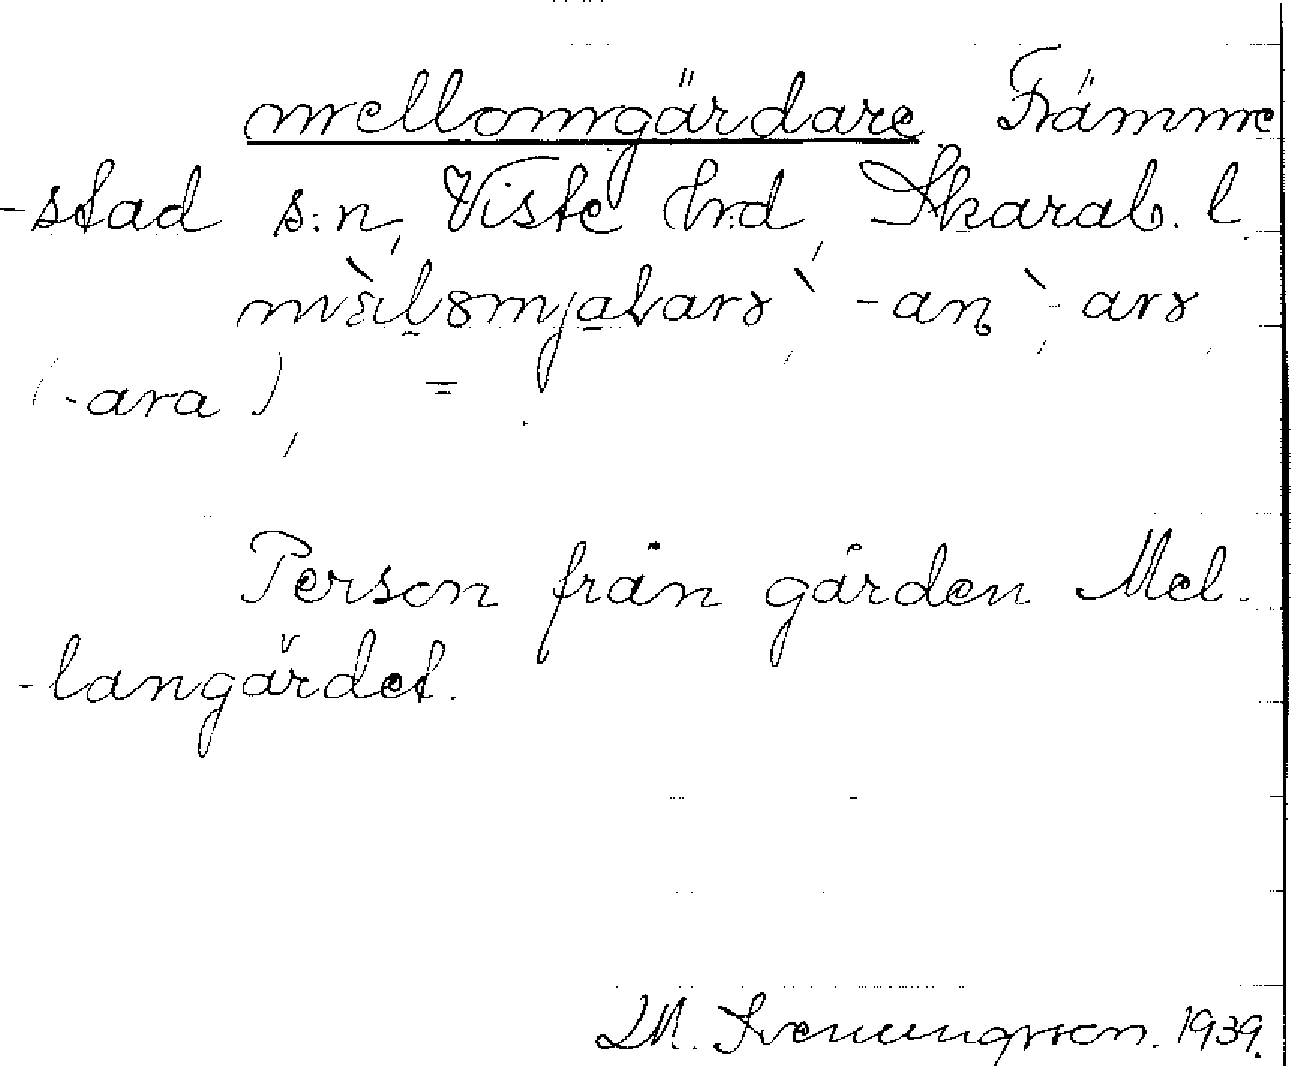 mellomgärdare Främme
-stad s:n, Viste hrd, Skarab. l.
-an, -arə,
(-ara), =
Person från gården Mel-
-langärdet.
M. Svenungsson. 1939.